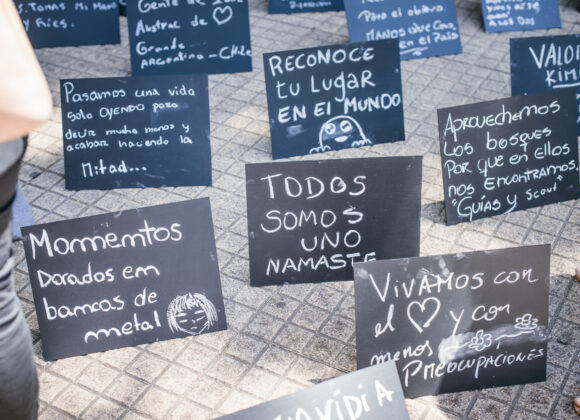 Toma Mi Mano
y Fríes.
Gente de
Austral de
Grande
Argentina - CHILE
Para el obrero
Marcos
en el País
Dos
RECONOCE
tu LUGAR
EN EL MUNDO
VALDI
KIM
Pasamos una vida
solo OYENDO para
decir mucho menos y
acabar haciendo la
Mitad...
Aprovechemos
Los bosques
Por que en ellos
nos Encontramos.
"Guías y Scout"
TODOS
SOMOS
UNO
NAMASTE
Momemtos
Dorados em
bamcas de
metal
Vivamos con
el y con
menos
Preocupaciones